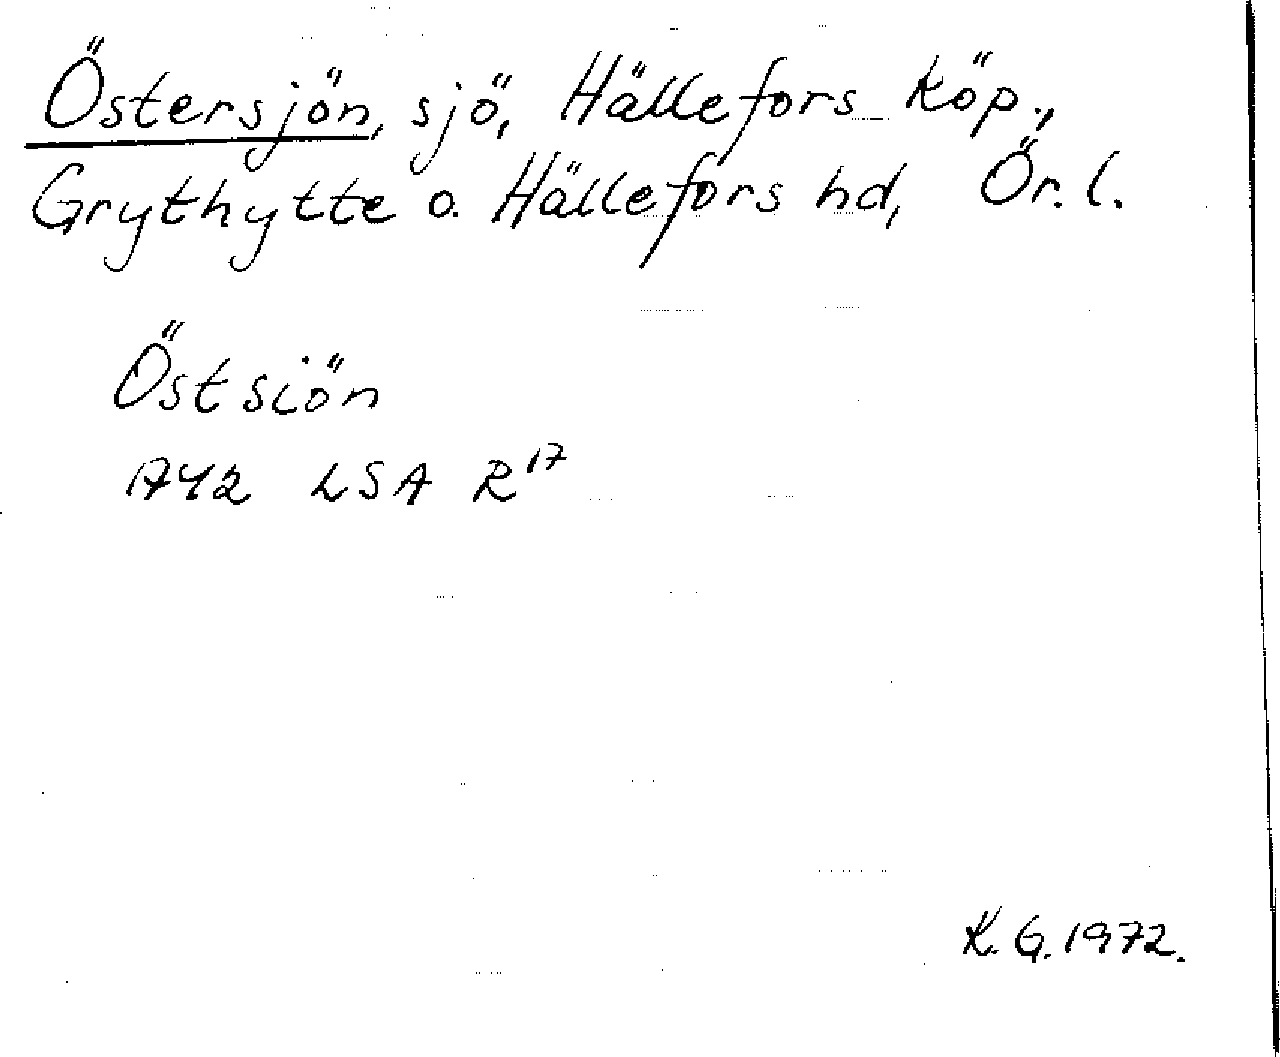 Östersjön, sjö, Hällefors köp.,
Grythytte o. Hällefors hd, Ör.l.
Östsiön
1742 LSA R17
K.G.1972.